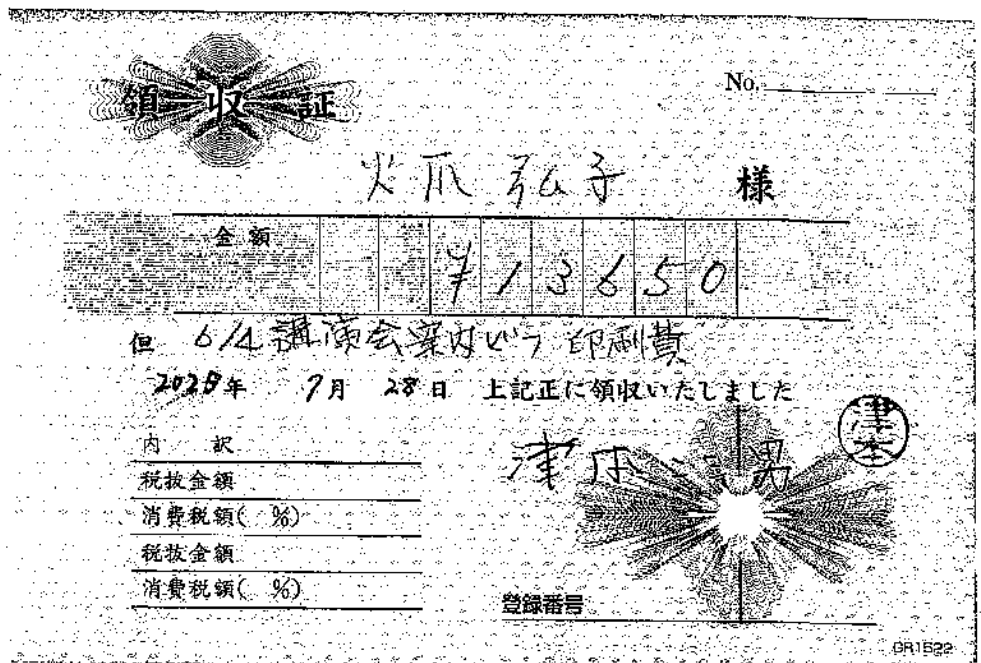 領収証
No.
火爪 弘子 様
金額 ¥13650
但 6/4 講演会案内ビラ 印刷費
年 7月 28日 上記正に領収いたしました
内 訳
津本 男
津本
税抜金額
消費税額( %)
税抜金額
消費税額( %)
登録番号
GR1522